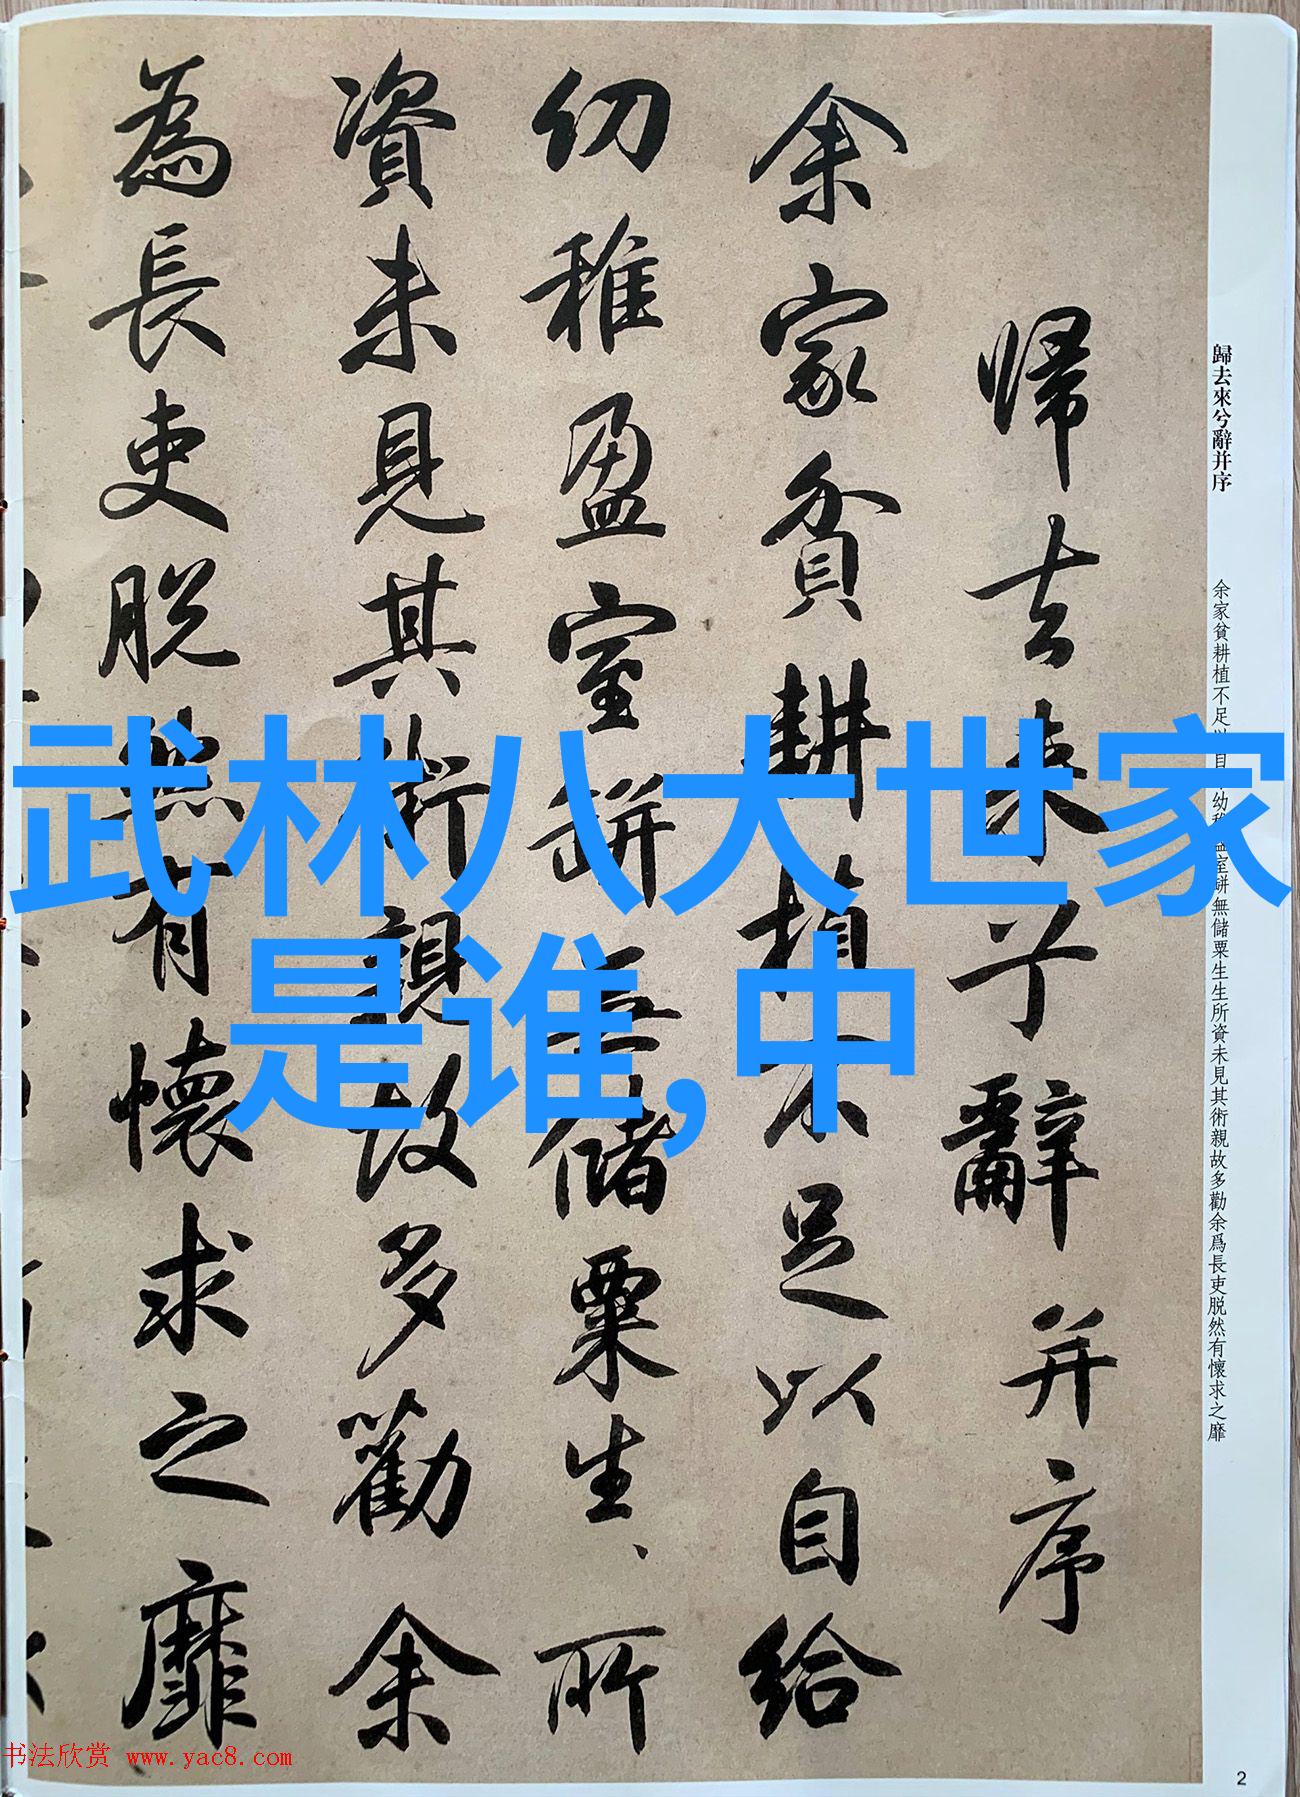 歸去來兮辭并序
余家貧耕植不足以自幼稚盈室缾無儲粟生生所資未見其術親故多勸余爲長吏脱然有懷求之靡
帰去来兮辭并序
余家貧耕植不足以自給
幼稚盈室缾無儲粟生、所
資未見其術親故多勸余
為長吏脱然有懷求之靡
武林八大世家
是谁,中
书法欣赏 www.yac8.com
2